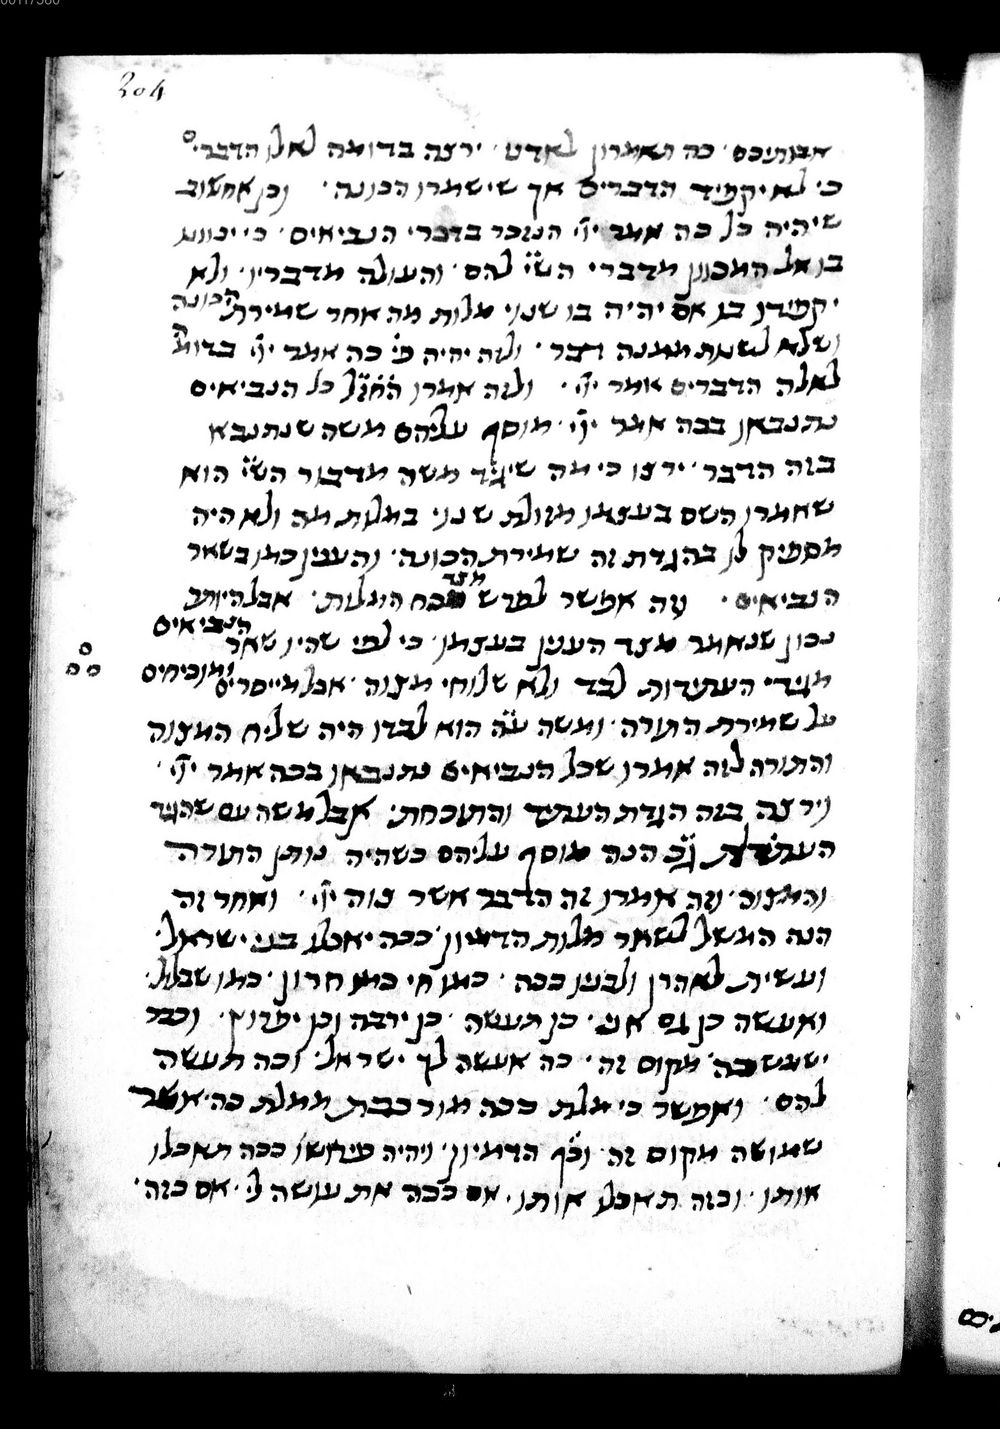 204
אבותיכם · כה תאמרון לאדני · ירצה בדומה לאלו הדברי׳
כי לא יקפיד הדברים אך שישמרו הכונה · וכן אחשוב
שיהיה כל כה אמר ייי הנזכר בדברי הנביאים · כי יכוונו
בו אל המכוון מדברי הש״י להם · והעולה מדבריו · ולא
יקפידו בו אם יהיה בו שנוי מלות מה אחר שמירת הכונה
ושלא לשנות ממנה דבר · ולזה יהיה פי׳ כה אמר ייי בדומה
לאלה הדברים אמר ייי · ולזה אמרו החז״ל כל הנביאים
נתנבאו בכה אמר ייי · מוסף עליהם משה שנתנבא
בזה הדבר · ירצו כי מה שיגיד משה מדבור הש״י הוא
שאמרו השם בעצמו מזולת שנוי במלות מה ולא היה
מספיק לו בהגדת זה שמירת הכונה · והענין כמו בשאר
הנביאים · וזה אפשר לפרש מצד כח המלות · אבל היותר
נכון שנאמר מצד הענין בעצמו · כי לפי שהיו שאר הנביאים
מגידי העתידות לבד ולא שלוחי מצוה · אבל מייסרים ומוכיחים
על שמירת התורה · ומשה ע״ה הוא לבדו היה שליח המצוה
והתורה לזה אמרו שכל הנביאים נתנבאו בכה אמר ייי ·
וירצה בזה הגדת העתיד והתוכחת · אבל משה עם שהגיד
העתידות ג״כ הנה מוסף עליהם כשהיה נותן התורה
והמצוה · וזה אמרו זה הדבר אשר צוה ייי · ואחר זה
הנה המשל לשאר מלות הדמיון · ככה יאכלו בני ישראל ·
ועשית לאהרן ולבניו ככה · כמו חי כמו חרון · כמו שבלול ·
ואעשה כן גם אני · כן תעשה · כן ירבה וכן יפרוץ · וכבר
ישמשו בה מקום זה · כה אעשה לך ישראל · וכה תעשה
להם · ואפשר כי מלת ככה מורכבת ממלת כה אשר
שמושה מקום זה · וכ״ף הדמיון · ויהיה פירושו ככה תאכלו
אותו · וכזה תאכלו אותו · אם ככה את עושה לי · אם כזה ·